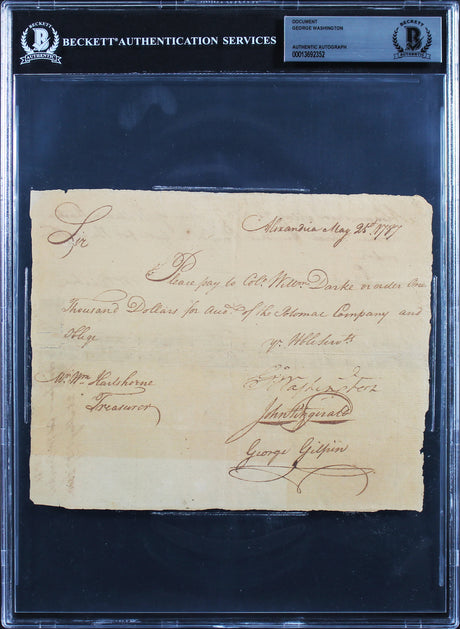 BECKETT AUTHENTICATION SERVICES
B
BECKETT
AUTHENTIC
DOCUMENT
GEORGE WASHINGTON
AUTHENTIC AUTOGRAPH
00013692352
B
BECKETT
AUTHENTIC
Sir
Alexandria May 28th. 1787
Please pay to Colo. Willm. Darke or order One
Thousand Dollars for Acct. of the Potomac Company and
Oblige
yr. Hble Servts
Mr. Wm. Hartshorne
Treasurer
Go Washington
John Fitzgerald
George Gilpin